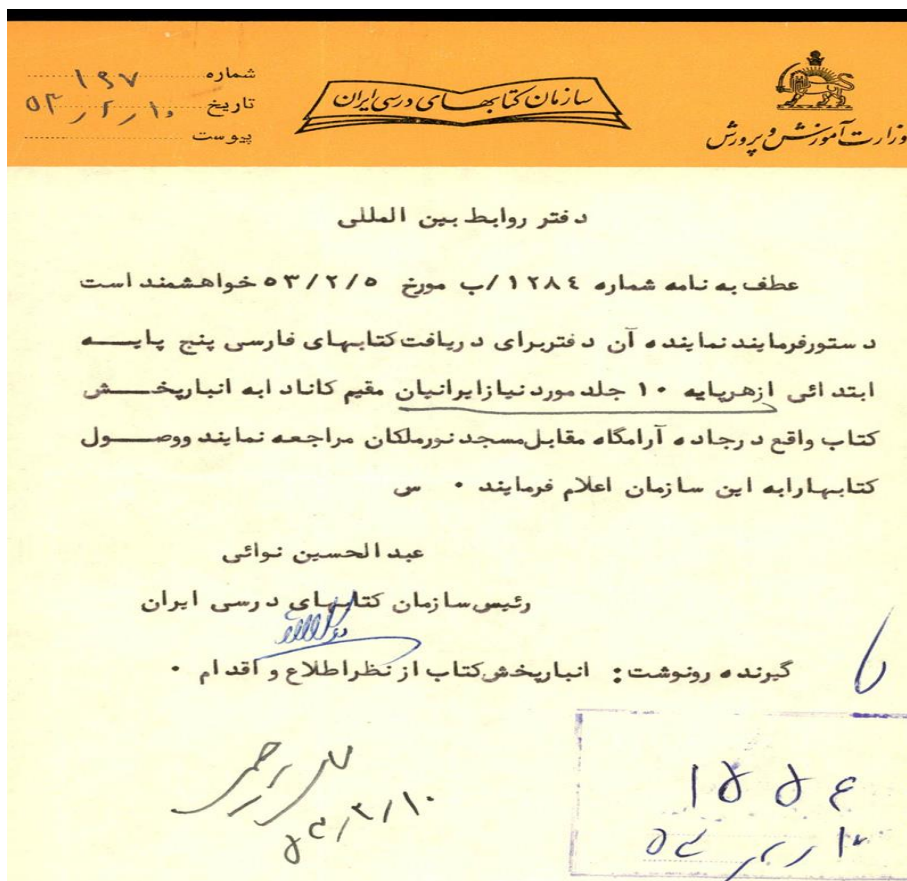 وزارت آموزش و پرورش
سازمان کتابهای درسی ایران
شماره ۱۹۷
تاریخ ۵۳/۲/۱۰
پیوست
دفتر روابط بین المللی
عطف به نامه شماره ۱۲۸۴/ب مورخ ۵۳/۲/۵ خواهشمند است
دستورفرمایند نماینده آن دفتربرای دریافت کتابهای فارسی پنج پایــه
ابتدائی ازهرپایه ۱۰ جلد مورد نیازایرانیان مقیم کانادابه انبارپخــش
کتاب واقع درجاده آرامگاه مقابل مسجد نورملکان مراجعه نمایند ووصــول
کتابهارابه این سازمان اعلام فرمایند ۰ س
عبدالحسین نوائی
رئیس سازمان کتابهای درسی ایران
گیرنده رونوشت: انبارپخش کتاب از نظراطلاع و اقدام ۰
۵۳/۲/۱۰
۱۵۵۴